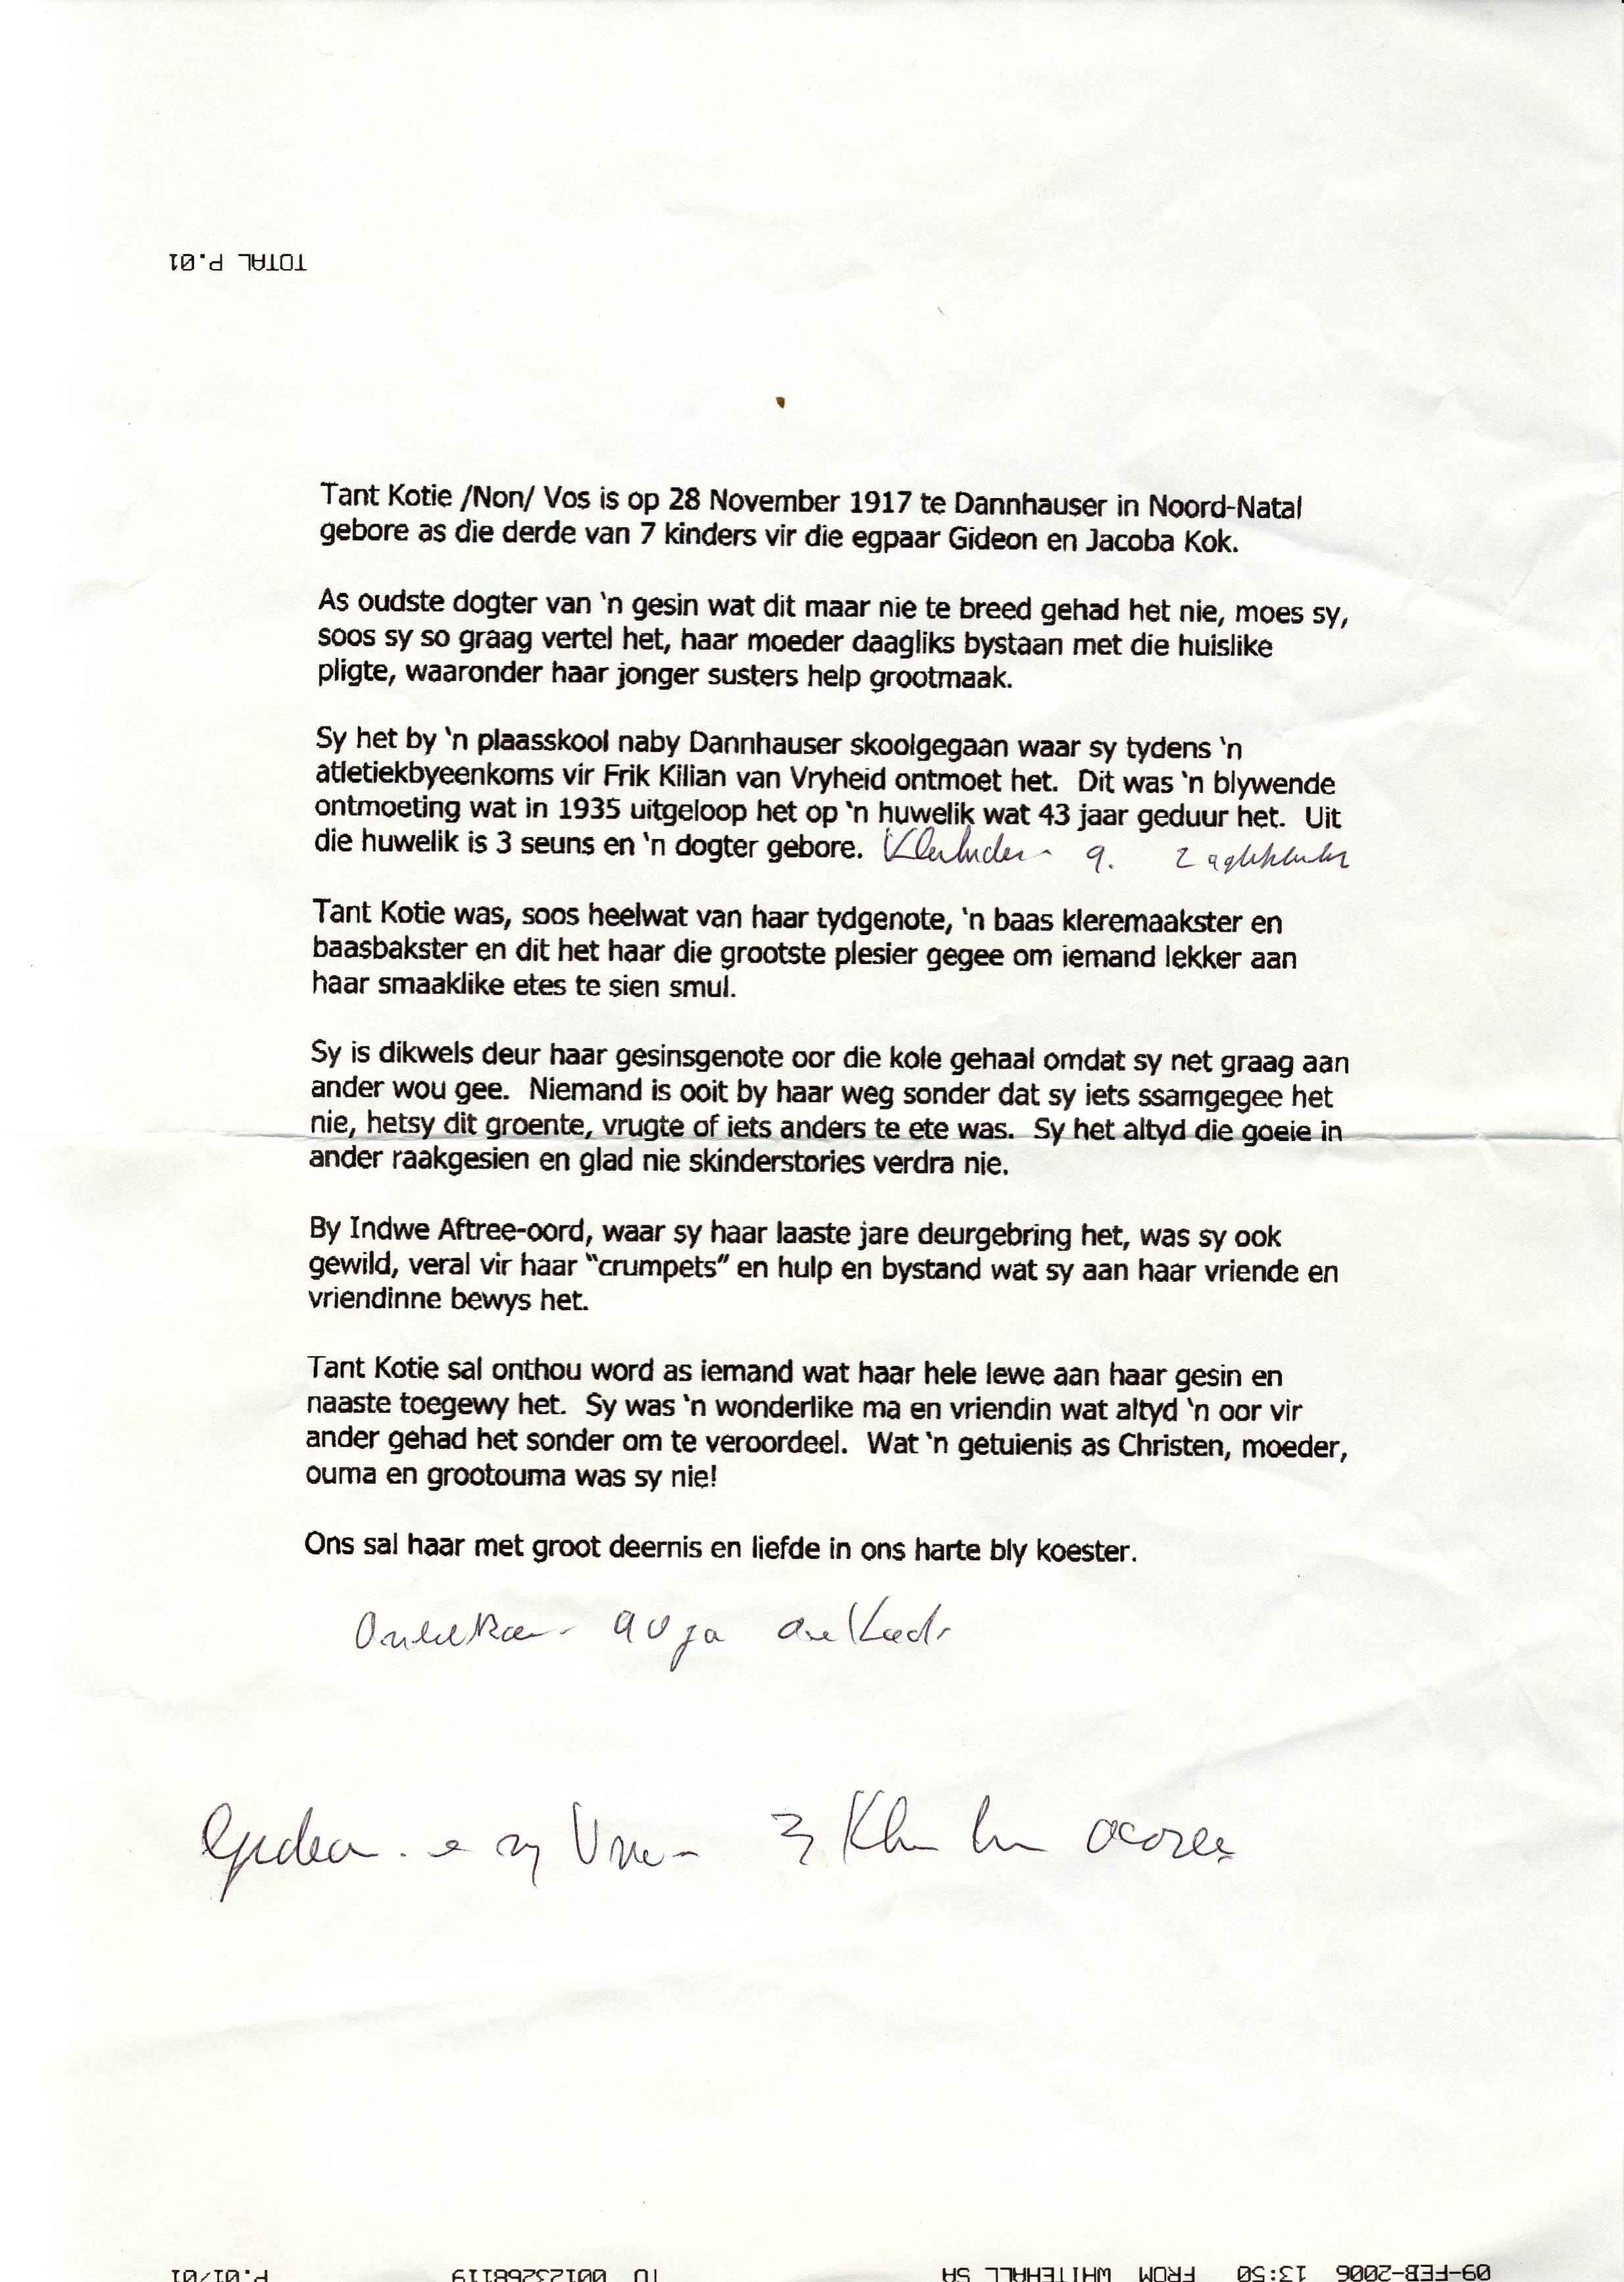 TOTAL P.01
Tant Kotie /Non/ Vos is op 28 November 1917 te Dannhauser in Noord-Natal
gebore as die derde van 7 kinders vir die egpaar Gideon en Jacoba Kok.
As oudste dogter van 'n gesin wat dit maar nie te breed gehad het nie, moes sy,
soos sy so graag vertel het, haar moeder daagliks bystaan met die huislike
pligte, waaronder haar jonger susters help grootmaak.
Sy het by 'n plaasskool naby Dannhauser skoolgegaan waar sy tydens 'n
atletiekbyeenkoms vir Frik Kilian van Vryheid ontmoet het. Dit was 'n blywende
ontmoeting wat in 1935 uitgeloop het op 'n huwelik wat 43 jaar geduur het. Uit
die huwelik is 3 seuns en 'n dogter gebore. 9. 2
Tant Kotie was, soos heelwat van haar tydgenote, 'n baas kleremaakster en
baasbakster en dit het haar die grootste plesier gegee om iemand lekker aan
haar smaaklike etes te sien smul.
Sy is dikwels deur haar gesinsgenote oor die kole gehaal omdat sy net graag aan
ander wou gee. Niemand is ooit by haar weg sonder dat sy iets ssamgegee het
nie, hetsy dit groente, vrugte of iets anders te ete was. Sy het altyd die goeie in
ander raakgesien en glad nie skinderstories verdra nie.
By Indwe Aftree-oord, waar sy haar laaste jare deurgebring het, was sy ook
gewild, veral vir haar "crumpets" en hulp en bystand wat sy aan haar vriende en
vriendinne bewys het.
Tant Kotie sal onthou word as iemand wat haar hele lewe aan haar gesin en
naaste toegewy het. Sy was 'n wonderlike ma en vriendin wat altyd 'n oor vir
ander gehad het sonder om te veroordeel. Wat 'n getuienis as Christen, moeder,
ouma en grootouma was sy nie!
Ons sal haar met groot deernis en liefde in ons harte bly koester.
09-FEB-2006 13:50 FROM WHITEHALL SA TO 00123268119 P.01/01